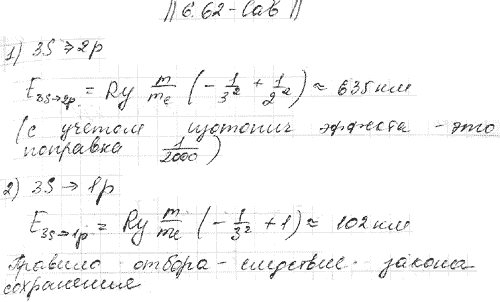 || 6.62 - Сав ||
1) 3S → 2p
E₃ₛ→₂ₚ = Ry m/mₑ (-1/3² + 1/2²) ≈ 635 нм
(с учетом изотопич эффекта - это
поправка 1/2000)
2) 3S → 1p
E₃ₛ→₁ₚ = Ry m/mₑ (-1/3² + 1) ≈ 102 нм
Правило отбора - следствие закона
сохранения